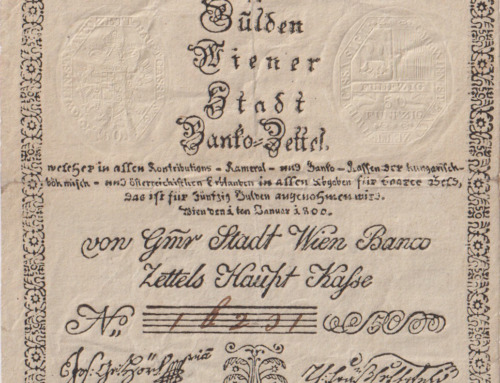 Gulden
Wiener
Stadt
Banko-Zettel,
welcher in allen Kontributions - Kameral - und Banko - Kassen der hungarisch-
böhmisch - und österreichischen Erblanden in allen Abgaben für baares Geld,
das ist für Fünfzig Gulden angenommen wird.
Wien den 1 ten Januar 1800.
von Gmr Stadt Wien Banco
Zettels Haupt Kasse
No. 16231